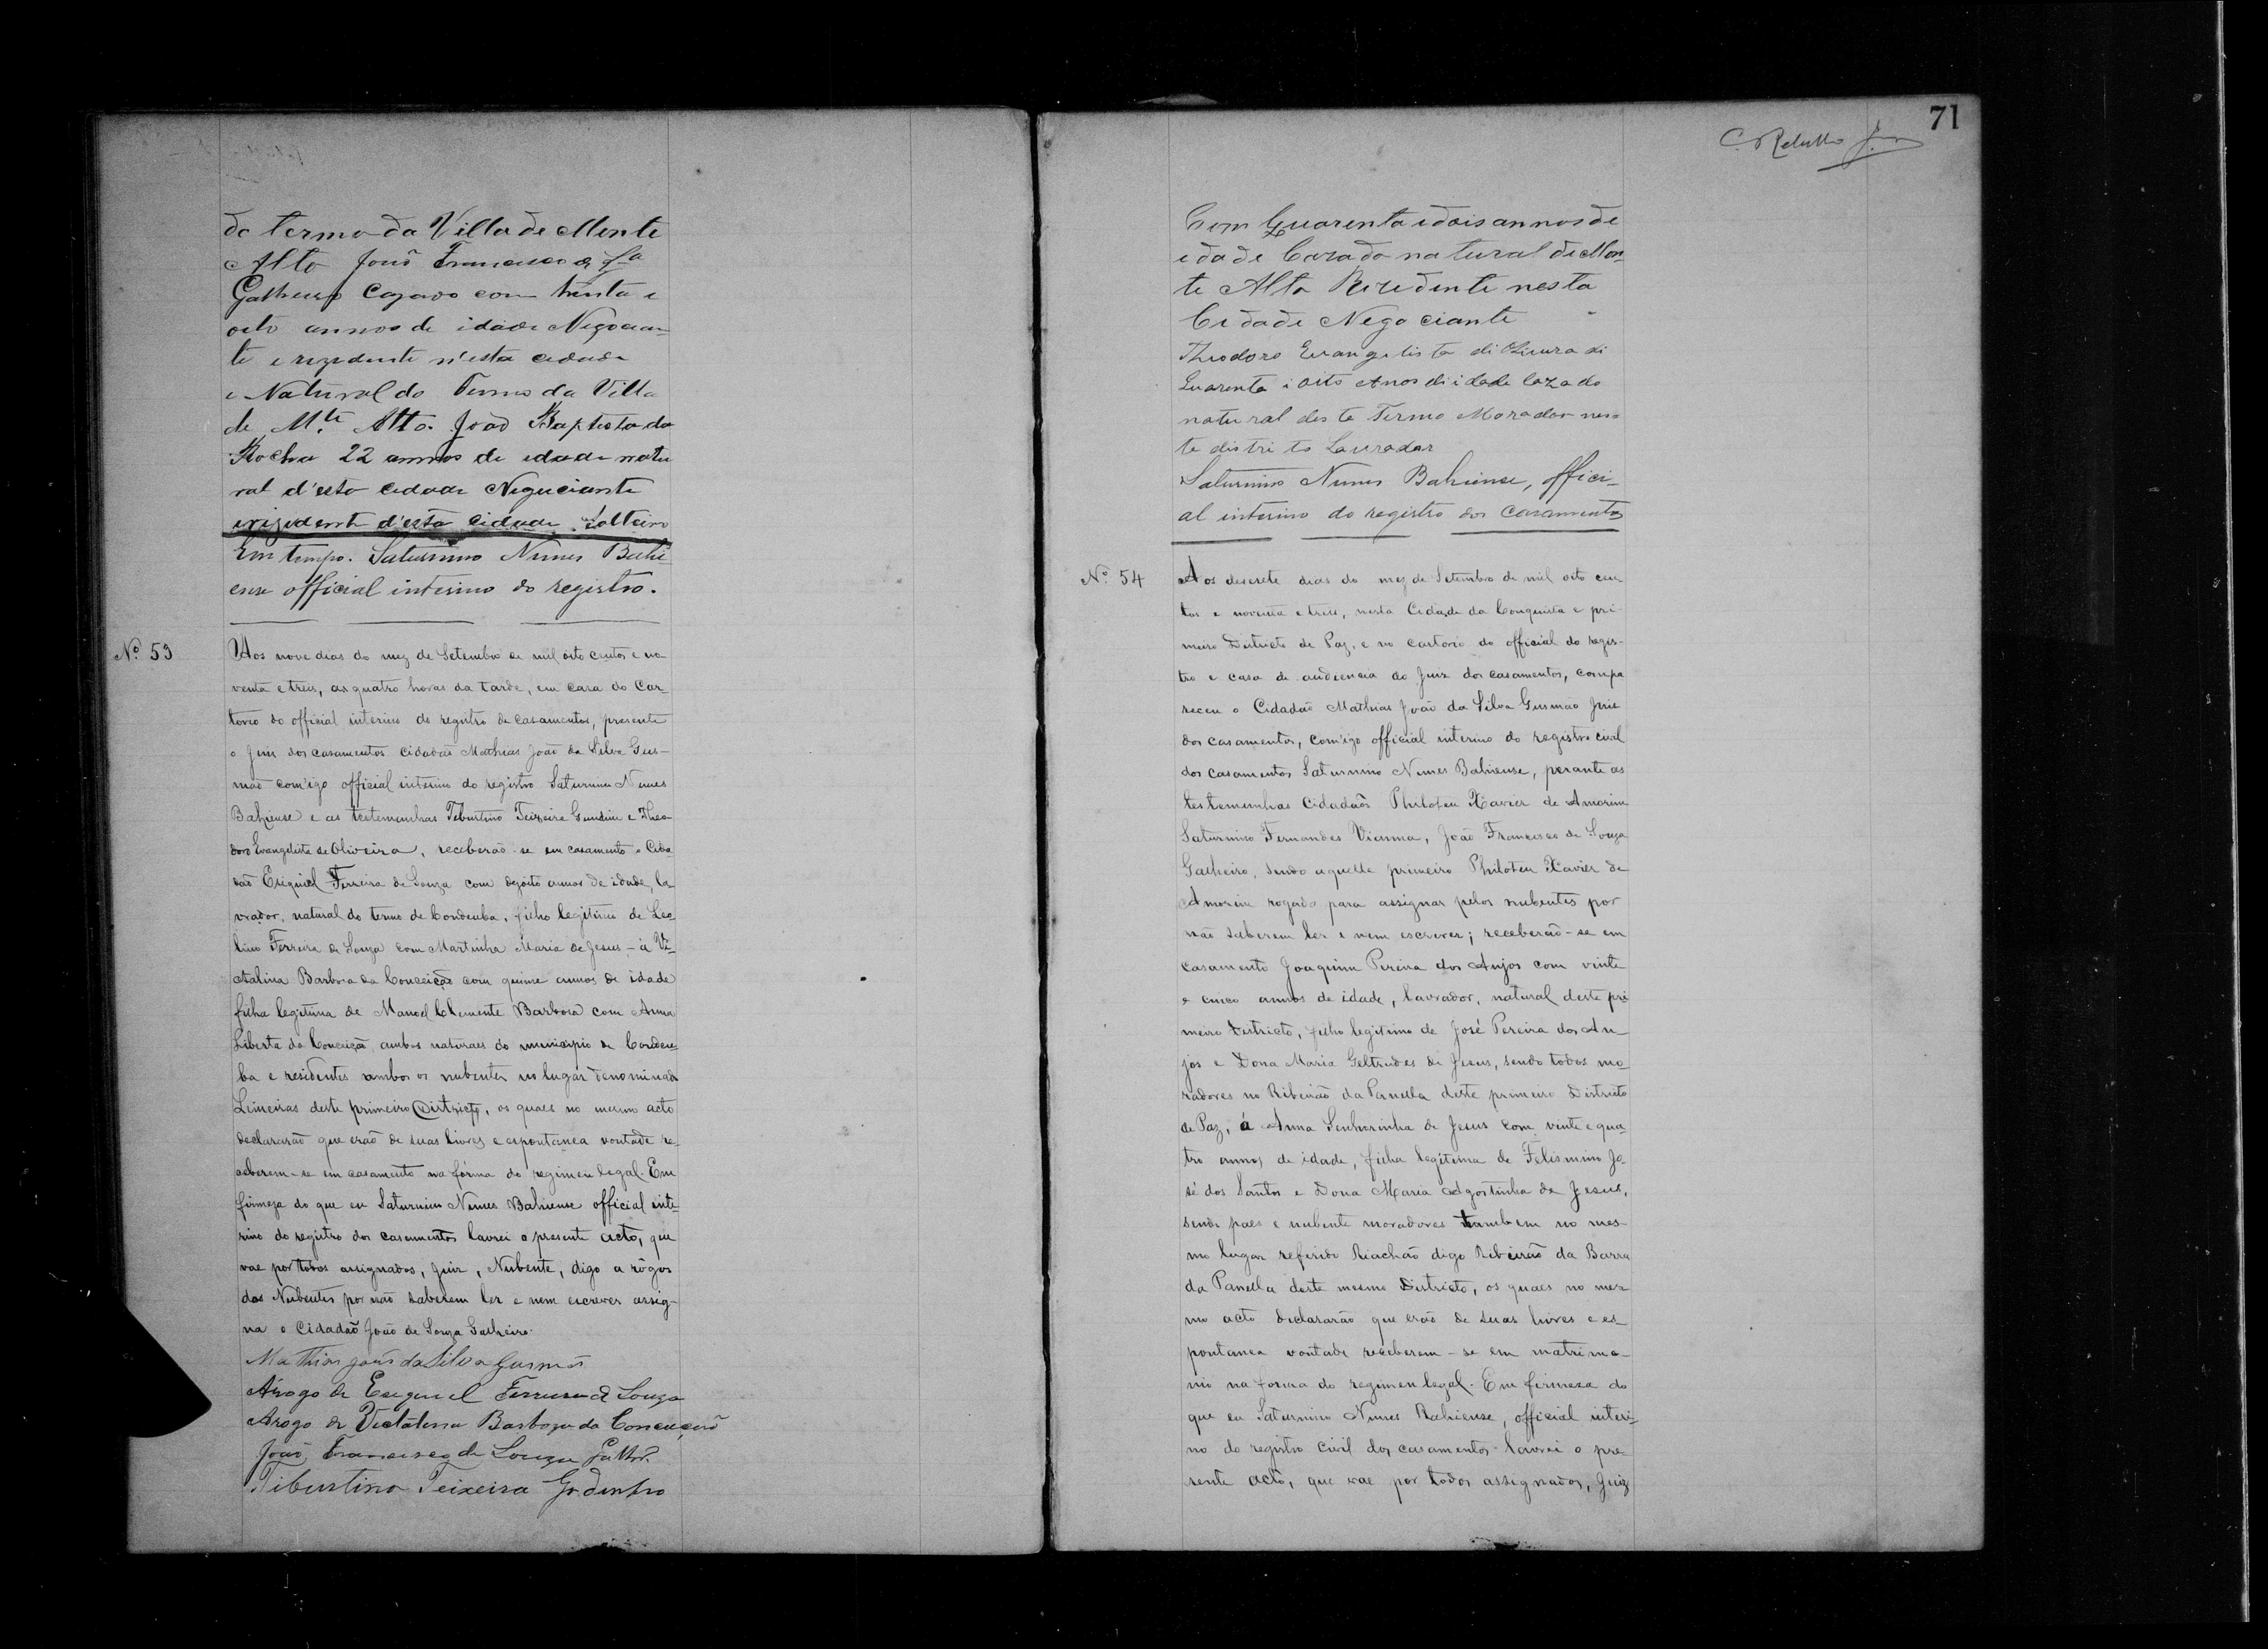 do termo da Villa de Monte
Alto João Francisco de Sza
Galheiro Cazado com trinta e
oito annos de idade Negocian-
te e rezidente n'esta cidade
e Natural do Termo da Villa
de Mte Alto. João Baptista da
Rocha 22 annos de idade natu
ral d'esta cidade Negociante
e rezidente d'esta cidade Solteiro
Em tempo. Saturnino Nunes Bahi
ense official interino do registro.
Nº 53
Aos nove dias do mez de Setembro de mil oito centos e no-
venta e treis, as quatro horas da tarde, em casa do Car-
torio do official interino do registro de casamentos, presente
o Juis dos casamentos cidadão Mathias João da Silva Gus-
mão com'igo official interino do registro Saturnino Nunes
Bahiense e as testemunhas Tiburtino Teixeira Gundim e Theo-
doro Evangelista de Oliveira, receberão-se em casamento o Cida-
dão Esiquiel Ferreira de Souza com dezoito annos de idade, la-
vrador, natural do termo de Condeuba, filho legitimo de Leo-
lino Ferreira de Souza com Martinha Maria de Jesus - á Vi-
ctalina Barbosa da Conceição com quinse annos de idade
filha legitima de Manoel Clemente Barbosa com Anna
Liberta da Conceição, ambos naturaes do municipio de Condeu-
ba e residentes ambos os nubentes no lugar denominado
Limeiras deste primeiro Districto, os quaes no mesmo acto
declararão que erão de suas livres e espontanea vontade re-
ceberem-se em casamento na fórma do regimen legal. Em
firmeza do que eu Saturnino Nunes Bahiense official inte-
rino do registro dos casamentos lavrei o presente acto, que
vae por todos assignados, Juiz, Nubente, digo a rôgos
dos Nubentes por não saberem ler e nem escrever assig-
na o Cidadão João de Souza Galheiro.
Mathias João da Silva Gusmão
Arogo de Esequiel Ferreira de Souza
Arogo de Victalina Barboza da Conceição
João Francisco de Souza Galhro
Tiburtino Teixeira Godinho
71
Com Quarenta e dois annos de
edade Cazado natural de Mon-
te Alto Rezidente nesta
Cidade Negociante
Theodoro Evangelista di Oliveira di
Quarenta i oito Anos di idade cazado
natural deste Termo Morador nes-
te distrito Lavrador
Saturnino Nunes Bahiense, offici-
al interino do registro dos casamentos
Nº 54
Aos desesete dias do mez de Setembro de mil oito cen
tos e noventa e treis, nesta Cidade da Conquista e pri-
meiro Districto de Paz, e no cartorio do official do regis-
tro e casa de audiencia do Juiz dos casamentos, compa
receu o Cidadão Mathias João da Silva Gusmão Juiz
dos casamentos, com'igo official interino do registro civil
dos casamentos Saturnino Nunes Bahiense, perante as
testemunhas Cidadãos Philoteu Xavier de Amorim
Saturnino Fernandes Vianna, João Francisco de Souza
Galheiro, sendo aquelle primeiro Philoteu Xavier de
Amorim rogado para assignar pelos nubentes por
não saberem ler e nem escrever; receberão-se em
casamento Joaquim Pereira dos Anjos com vinte
e cinco annos de idade, lavrador, natural deste pri
meiro Districto, filho legitimo de José Pereira dos An-
jos e Dona Maria Geltrudes de Jesus, sendo todos mo-
radores no Ribeirão da Panella deste primeiro Districto
de Paz, á Anna Senhorinha de Jesus com vinte e qua-
tro annos de idade, filha legitima de Felismino Jo-
sé dos Santos e Dona Maria Agostinha de Jesus,
sendo paes e nubente moradores tambem no mes-
mo lugar referido Riachão digo Ribeirão da Barra
da Panella deste mesmo Districto, os quaes no mes-
mo acto declararão que erão de suas livres e es-
pontanea vontade receberem-se em matrimo-
nio na forma do regimen legal. Em firmeza do
que eu Saturnino Nunes Bahiense, official interi-
no do registro civil dos casamentos lavrei o pre-
sente acto, que vae por todos assignados, Juiz